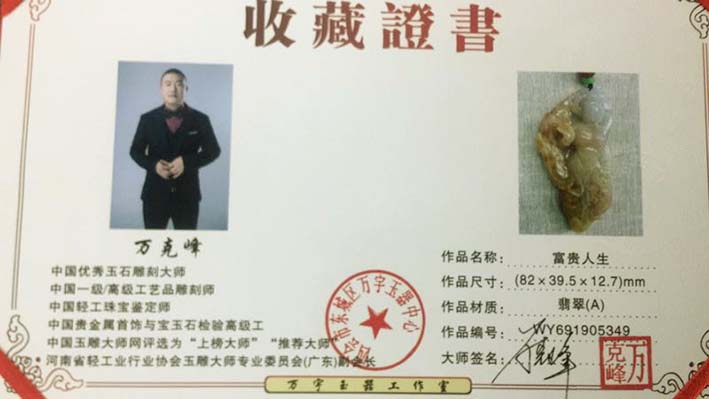 收藏證書
万克峰
中国优秀玉石雕刻大师
中国一级/高级工艺品雕刻师
中国轻工珠宝鉴定师
中国贵金属首饰与宝玉石检验高级工
中国玉雕大师网评选为“上榜大师”“推荐大师”
河南省轻工业行业协会玉雕大师专业委员会(广东)副会长
作品名称： 富贵人生
作品尺寸： (82×39.5×12.7)mm
作品材质： 翡翠(A)
作品编号： WY691905349
大师签名：
会市东城区万字玉器中心
万克峰
万字玉器工作室